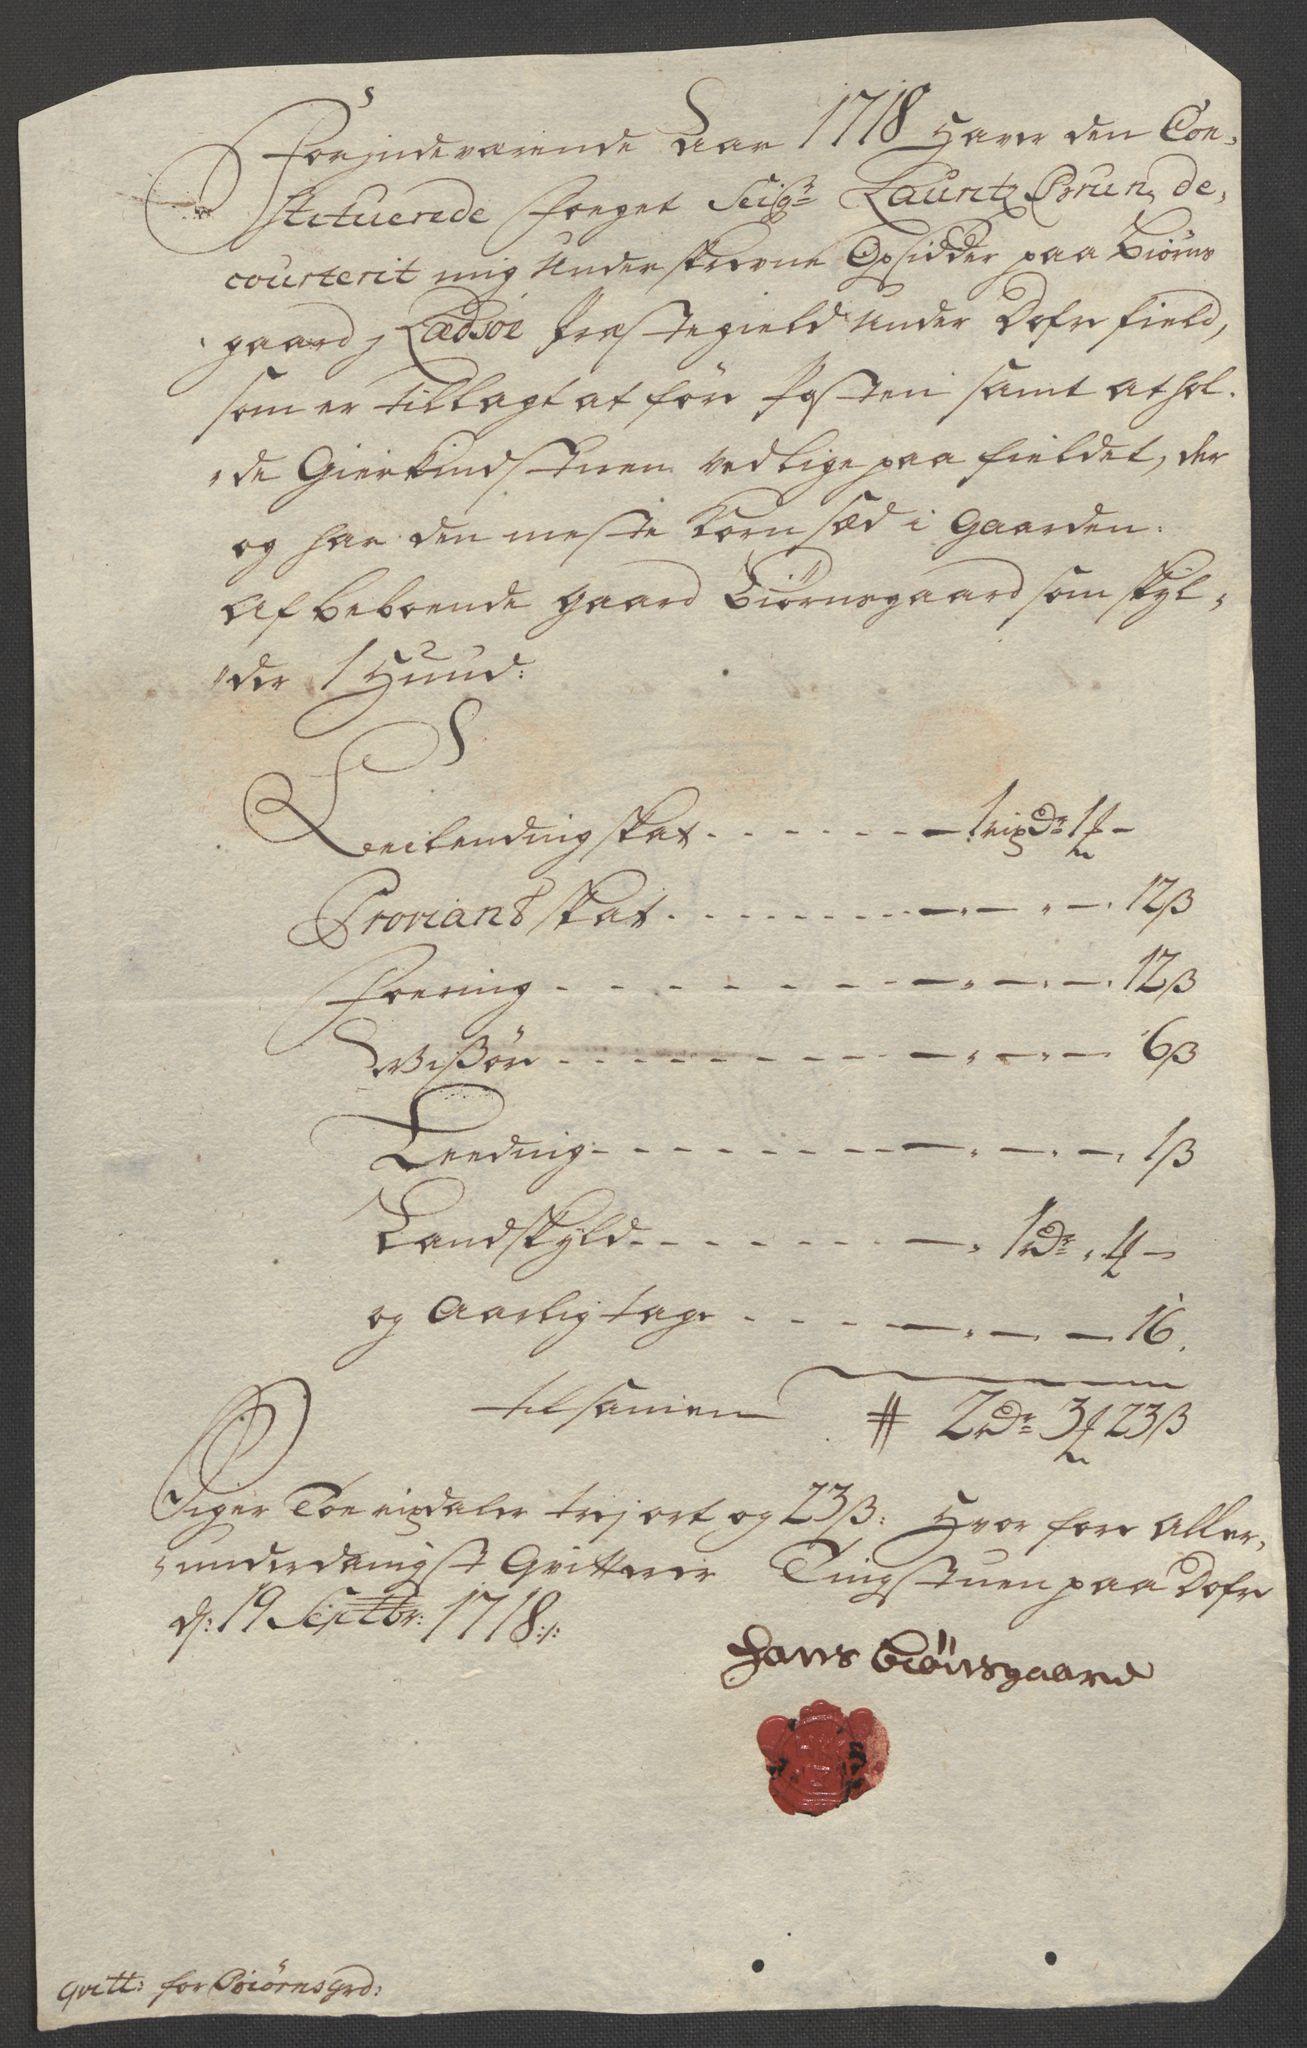 Forindeværende Aar 1718 Haver den Con-
stituerede Foeget Seigr: Lauritz Brun, de-
courterit mig Underskrevne Opsidder paa Biørns
gaard j Lædsøe Præstegield Under Dofrefield,
som er tillagt at føre Posten samt at hol-
de Gierkindstuen vedlige paa fieldet, der
og har den meste Kornsæd i Gaarden.
Af beboende gaard Biørnsgaard som skyl-
der 1 Huud:
Leilendingskat - - - 1 rixdr: 1 ort -
Proviantskat - - - 12 ß
Foering - - - 12 ß
Wisøre - - - 6 ß
Leeding - - - 1 ß
Landskyld - - - 1 rdr: 4 -
og Aarlig tage - - - 16.
tilsamen # 2 rdr: 3 ort 23 ß
Siger Toe rixdaler trej ort og 23 ß: Hvor fore Aller-
underdanigst Qvitterer Tingstuen paa Dofre
d: 19 Septbr: 1718 ://:
Hans Biörnsgaard
Qvitt: for Biörnsgrd: